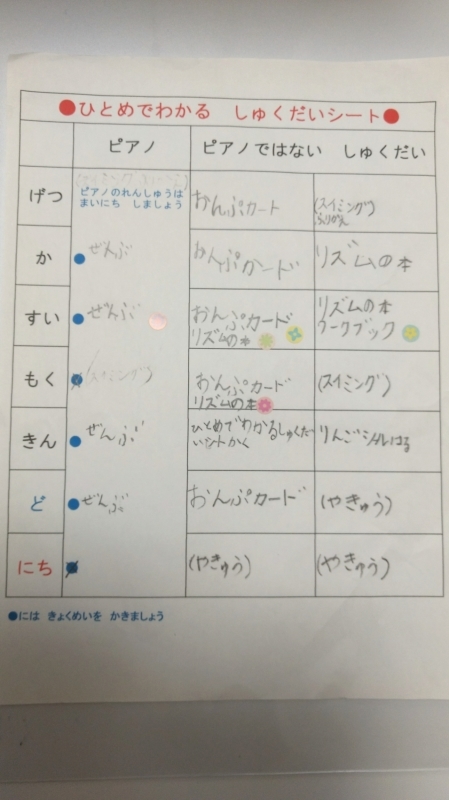 ●ひとめでわかる しゅくだいシート●
ピアノ ピアノではない しゅくだい
げつ
ピアノのれんしゅうは
まいにち しましょう
おんぷカード
(スイミング)
ふりかえ
か ●ぜんぶ おんぷカード リズムの本
すい ●ぜんぶ
おんぷカード
リズムの本
リズムの本
ワークブック
もく ●(スイミング)
おんぷカード
リズムの本
(スイミング)
きん ●ぜんぶ
ひとめでわかるしゅくだ
いシートかく
りんごシールはる
ど ●ぜんぶ おんぷカード (やきゅう)
にち ● (やきゅう) (やきゅう)
●には きょくめいを かきましょう